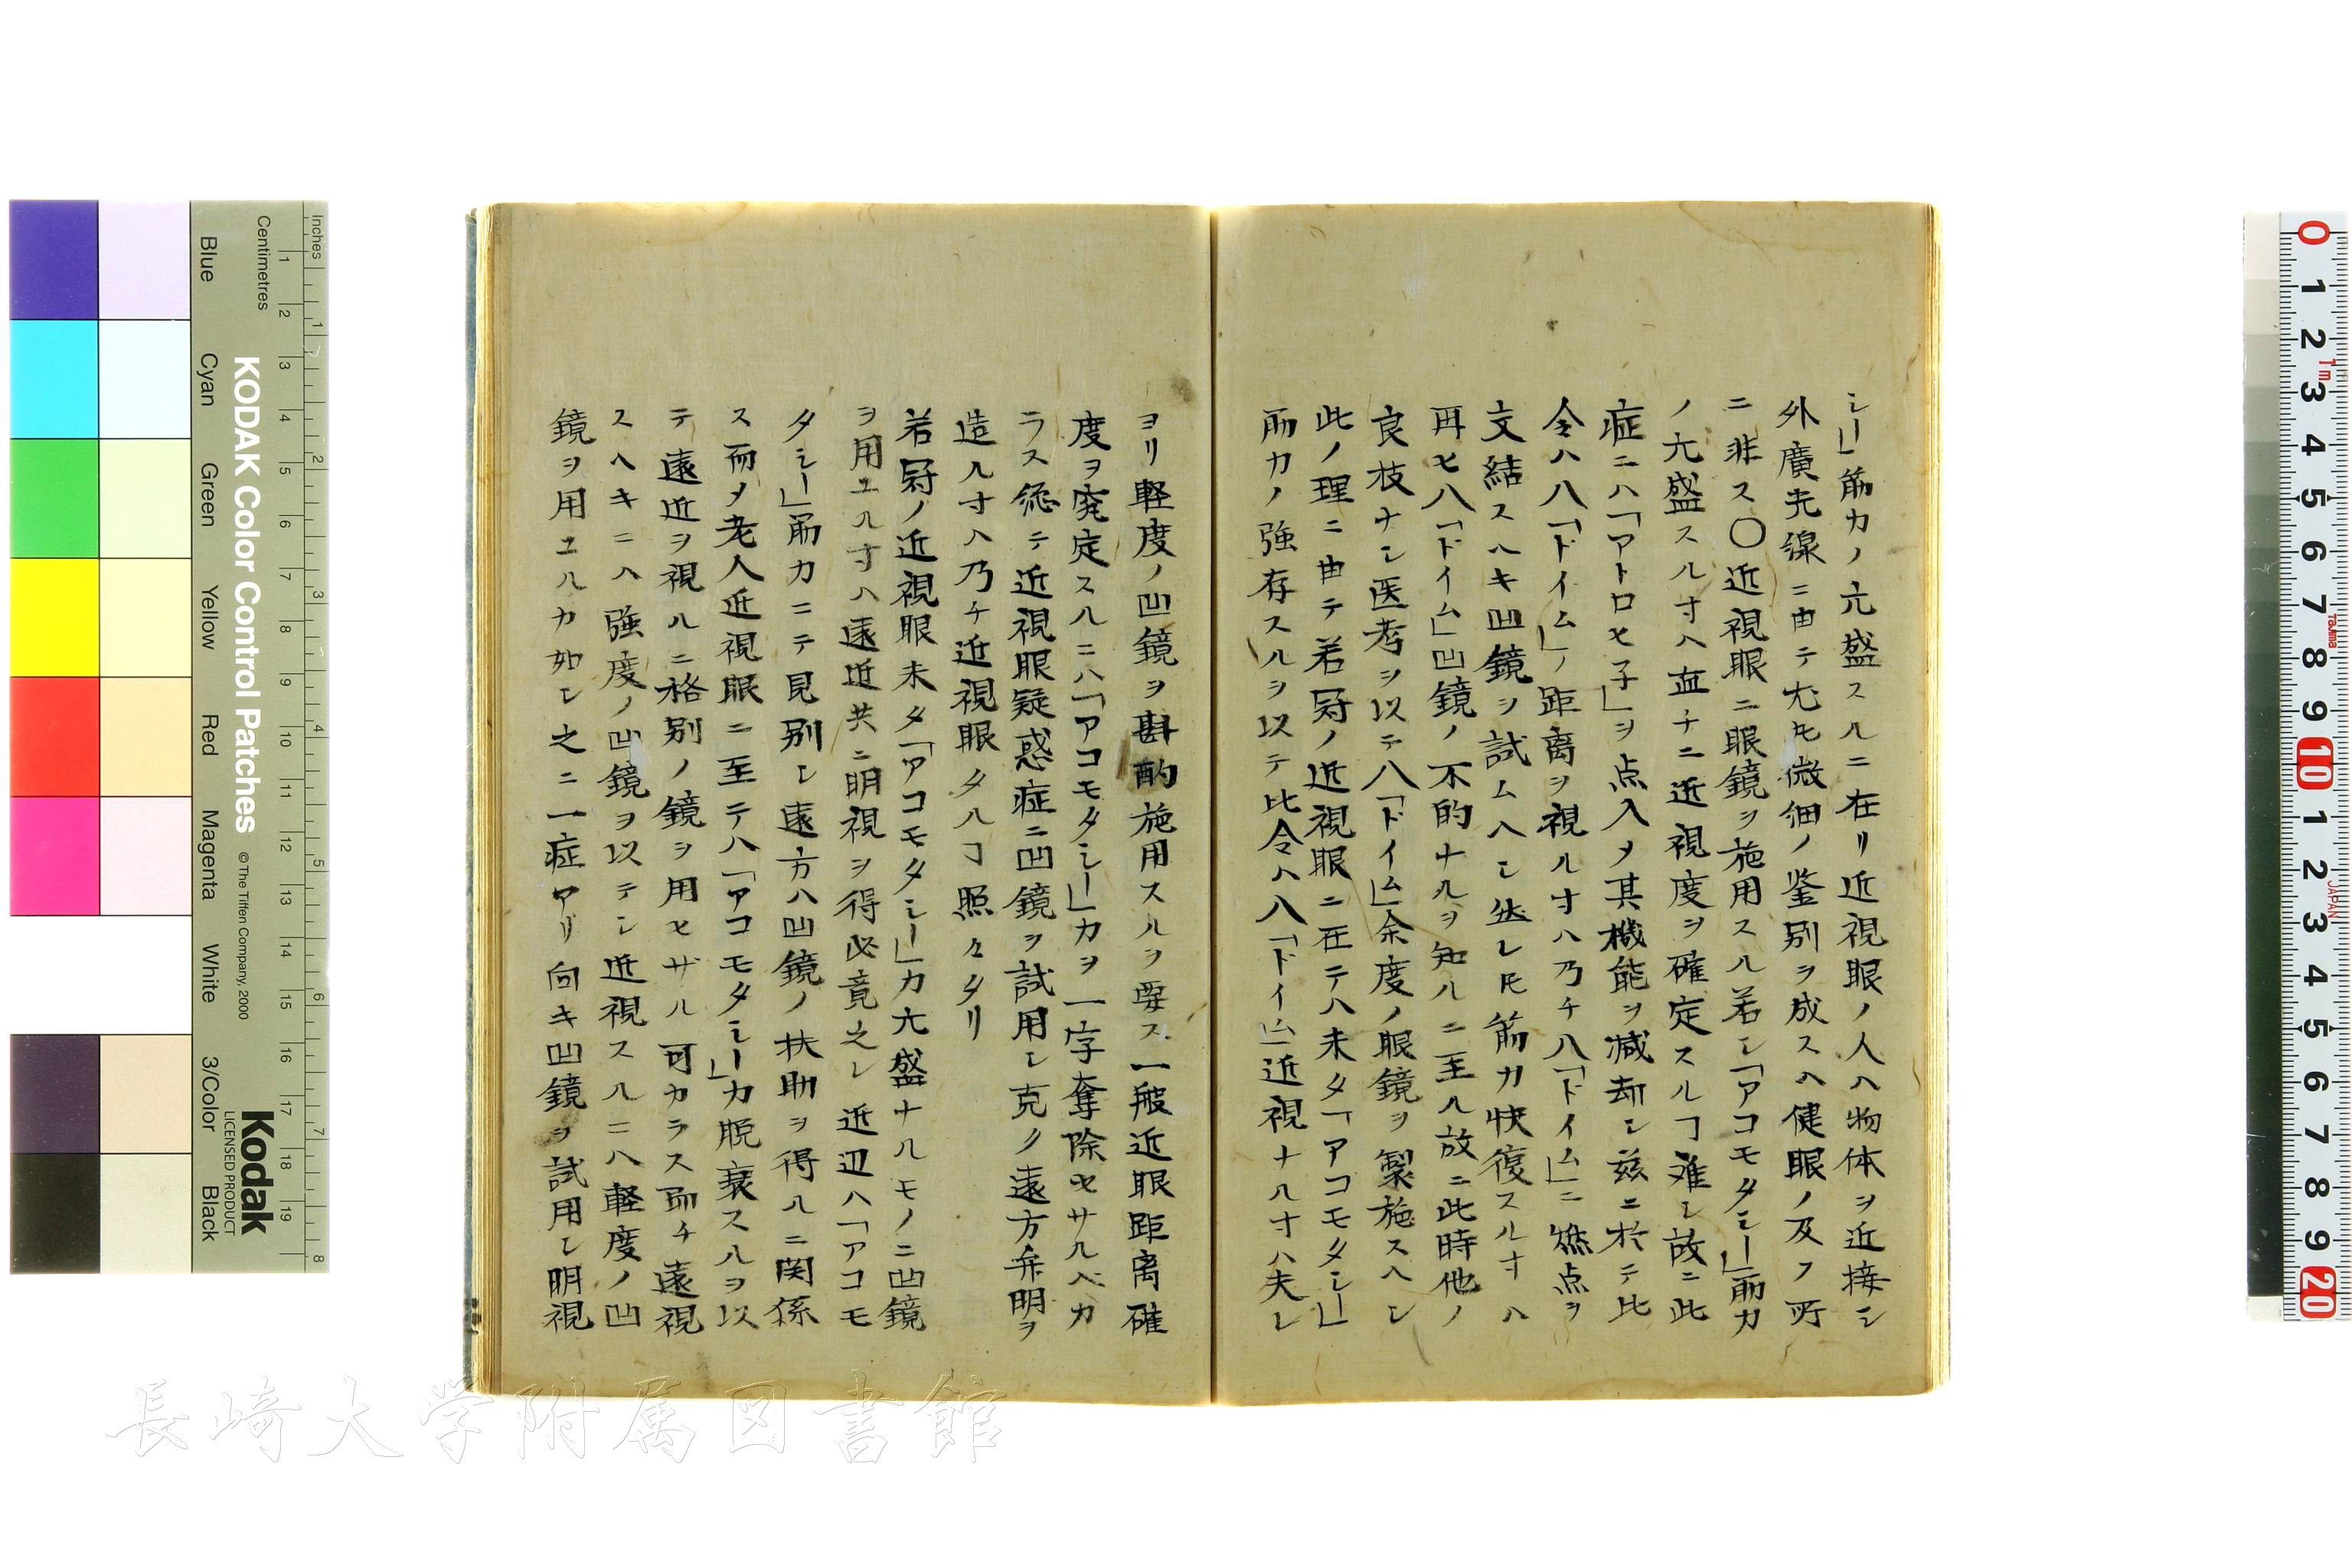 シー」筋力ノ亢盛スルニ在リ近視眼ノ人ハ物体ヲ近接シ
外廣光線ニ由テ尤モ微細ノ鉴別ヲ成スヘ健眼ノ及フ所
ニ非ス〇近視眼ニ眼鏡ヲ施用スル若シ「アコモタシー」筋力
ノ亢盛スル寸ハ血チニ近視度ヲ確定スルヿ难シ故ニ此
症ニハ「アトロセ子」ヲ点入メ其機能ヲ減却シ兹ニ於テ比
令ハ八「ドイム」ノ距离ヲ視ル寸ハ乃チ八「ドイム」ニ燃点ヲ
交結スヘキ凹鏡ヲ試ムヘシ然レ𪜈筋力快復スル寸ハ
再ヒ八「ドイム」凹鏡ノ不的ナルヲ知ルニ至ル故ニ此時他ノ
良枝ナシ医考ヲ以テ八「ドイム」余度ノ眼鏡ヲ製施スヘシ
此ノ理ニ由テ若冠ノ近視眼ニ在テハ未タ「アコモタシー」
筋力ノ強存スルヲ以テ比令ハ八「ドイム」近視ナル寸ハ夫レ
ヨリ軽度ノ凹鏡ヲ斟酌施用スルヲ要ス一般近眼距离確
度ヲ廃定スルニハ「アコモタシー」力ヲ一字奪除セサルベカ
ラス総テ近視眼疑惑症ニ凹鏡ヲ試用シ克ク遠方弁明ヲ
造ル寸ハ乃チ近視眼タルヿ照々タリ
若冠ノ近視眼未タ「アコモタシー」力亢盛ナルモノニ凹鏡
ヲ用ユル寸ハ遠近共ニ明視ヲ得必竟之レ近辺ハ「アコモ
タシー」筋力ニテ見別シ遠方ハ凹鏡ノ扶助ヲ得ルニ関係
ス而メ老人近視眼ニ至テハ「アコモタシー」力脱衰スルヲ以
テ遠近ヲ視ルニ格別ノ鏡ヲ用セザル可カラス而チ遠視
スヘキニハ強度ノ凹鏡ヲ以テシ近視スルニハ軽度ノ凹
鏡ヲ用ユルカ如シ之ニ一症アリ向キ凹鏡ヲ試用シ明視
長崎大学附属図書館
Inches
Centimetres
KODAK Color Control Patches
©The Tiffen Company, 2000
Kodak
LICENSED PRODUCT
Blue
Cyan
Green
Yellow
Red
Magenta
White
3/Color
Black
1 2 3 4 5 6 7 8 9 10 11 12 13 14 15 16 17 18 19
1 2 3 4 5 6 7 8
0 1 2 3 4 5 6 7 8 9 10 1 2 3 4 5 6 7 8 9 20
1m
Tajima
JAPAN